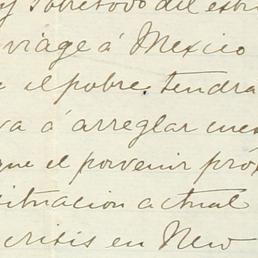 y sobretodo del estr
viage á Mexico
e el pobre tendra
va á arreglar cues
que el porvenir pró
situacion actual
crisis en New